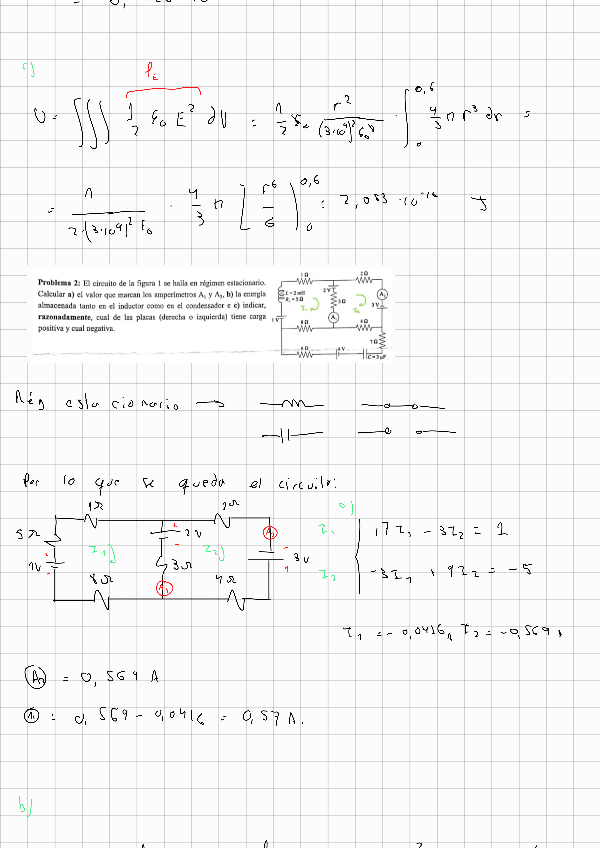 c)
ρ_E
U = ∭ 1/2 ε₀ E² dV = 1/2 ε₀ r²/(3·10⁴)² ε₀² · ∫₀^0,6 4/3 π r³ dr =
= 1/(2·(3·10⁴)² ε₀) · 4/3 π [r⁶/6]₀^0,6 = 2,083·10 J
Problema 2: El circuito de la figura 1 se halla en régimen estacionario.
Calcular a) el valor que marcan los amperímetros A₁ y A₂, b) la energía
almacenada tanto en el inductor como en el condensador e c) indicar,
razonadamente, cual de las placas (derecha o izquierda) tiene carga
positiva y cual negativa.
1Ω 2Ω
L = 2 mH 2 V A₂
R_L = 5Ω 3Ω 3 V
I₁ I₂
1 V A₁
8Ω 4Ω
7Ω
6Ω 4 V C = 3 μF
Rég estacionario →
Por lo que se queda el circuito:
1Ω 2Ω a)
5Ω 2V A₂ I₁ 17 I₁ - 3I₂ = 1
I₁ I₂
1V 3Ω 3V I₂ -3I₁ + 9I₂ = -5
8Ω A₁ 4Ω
I₁ = -0,0416 A I₂ = -0,569 A
= 0,569 A
= 0,569 - 0,0416 = 0,57 A.
b)